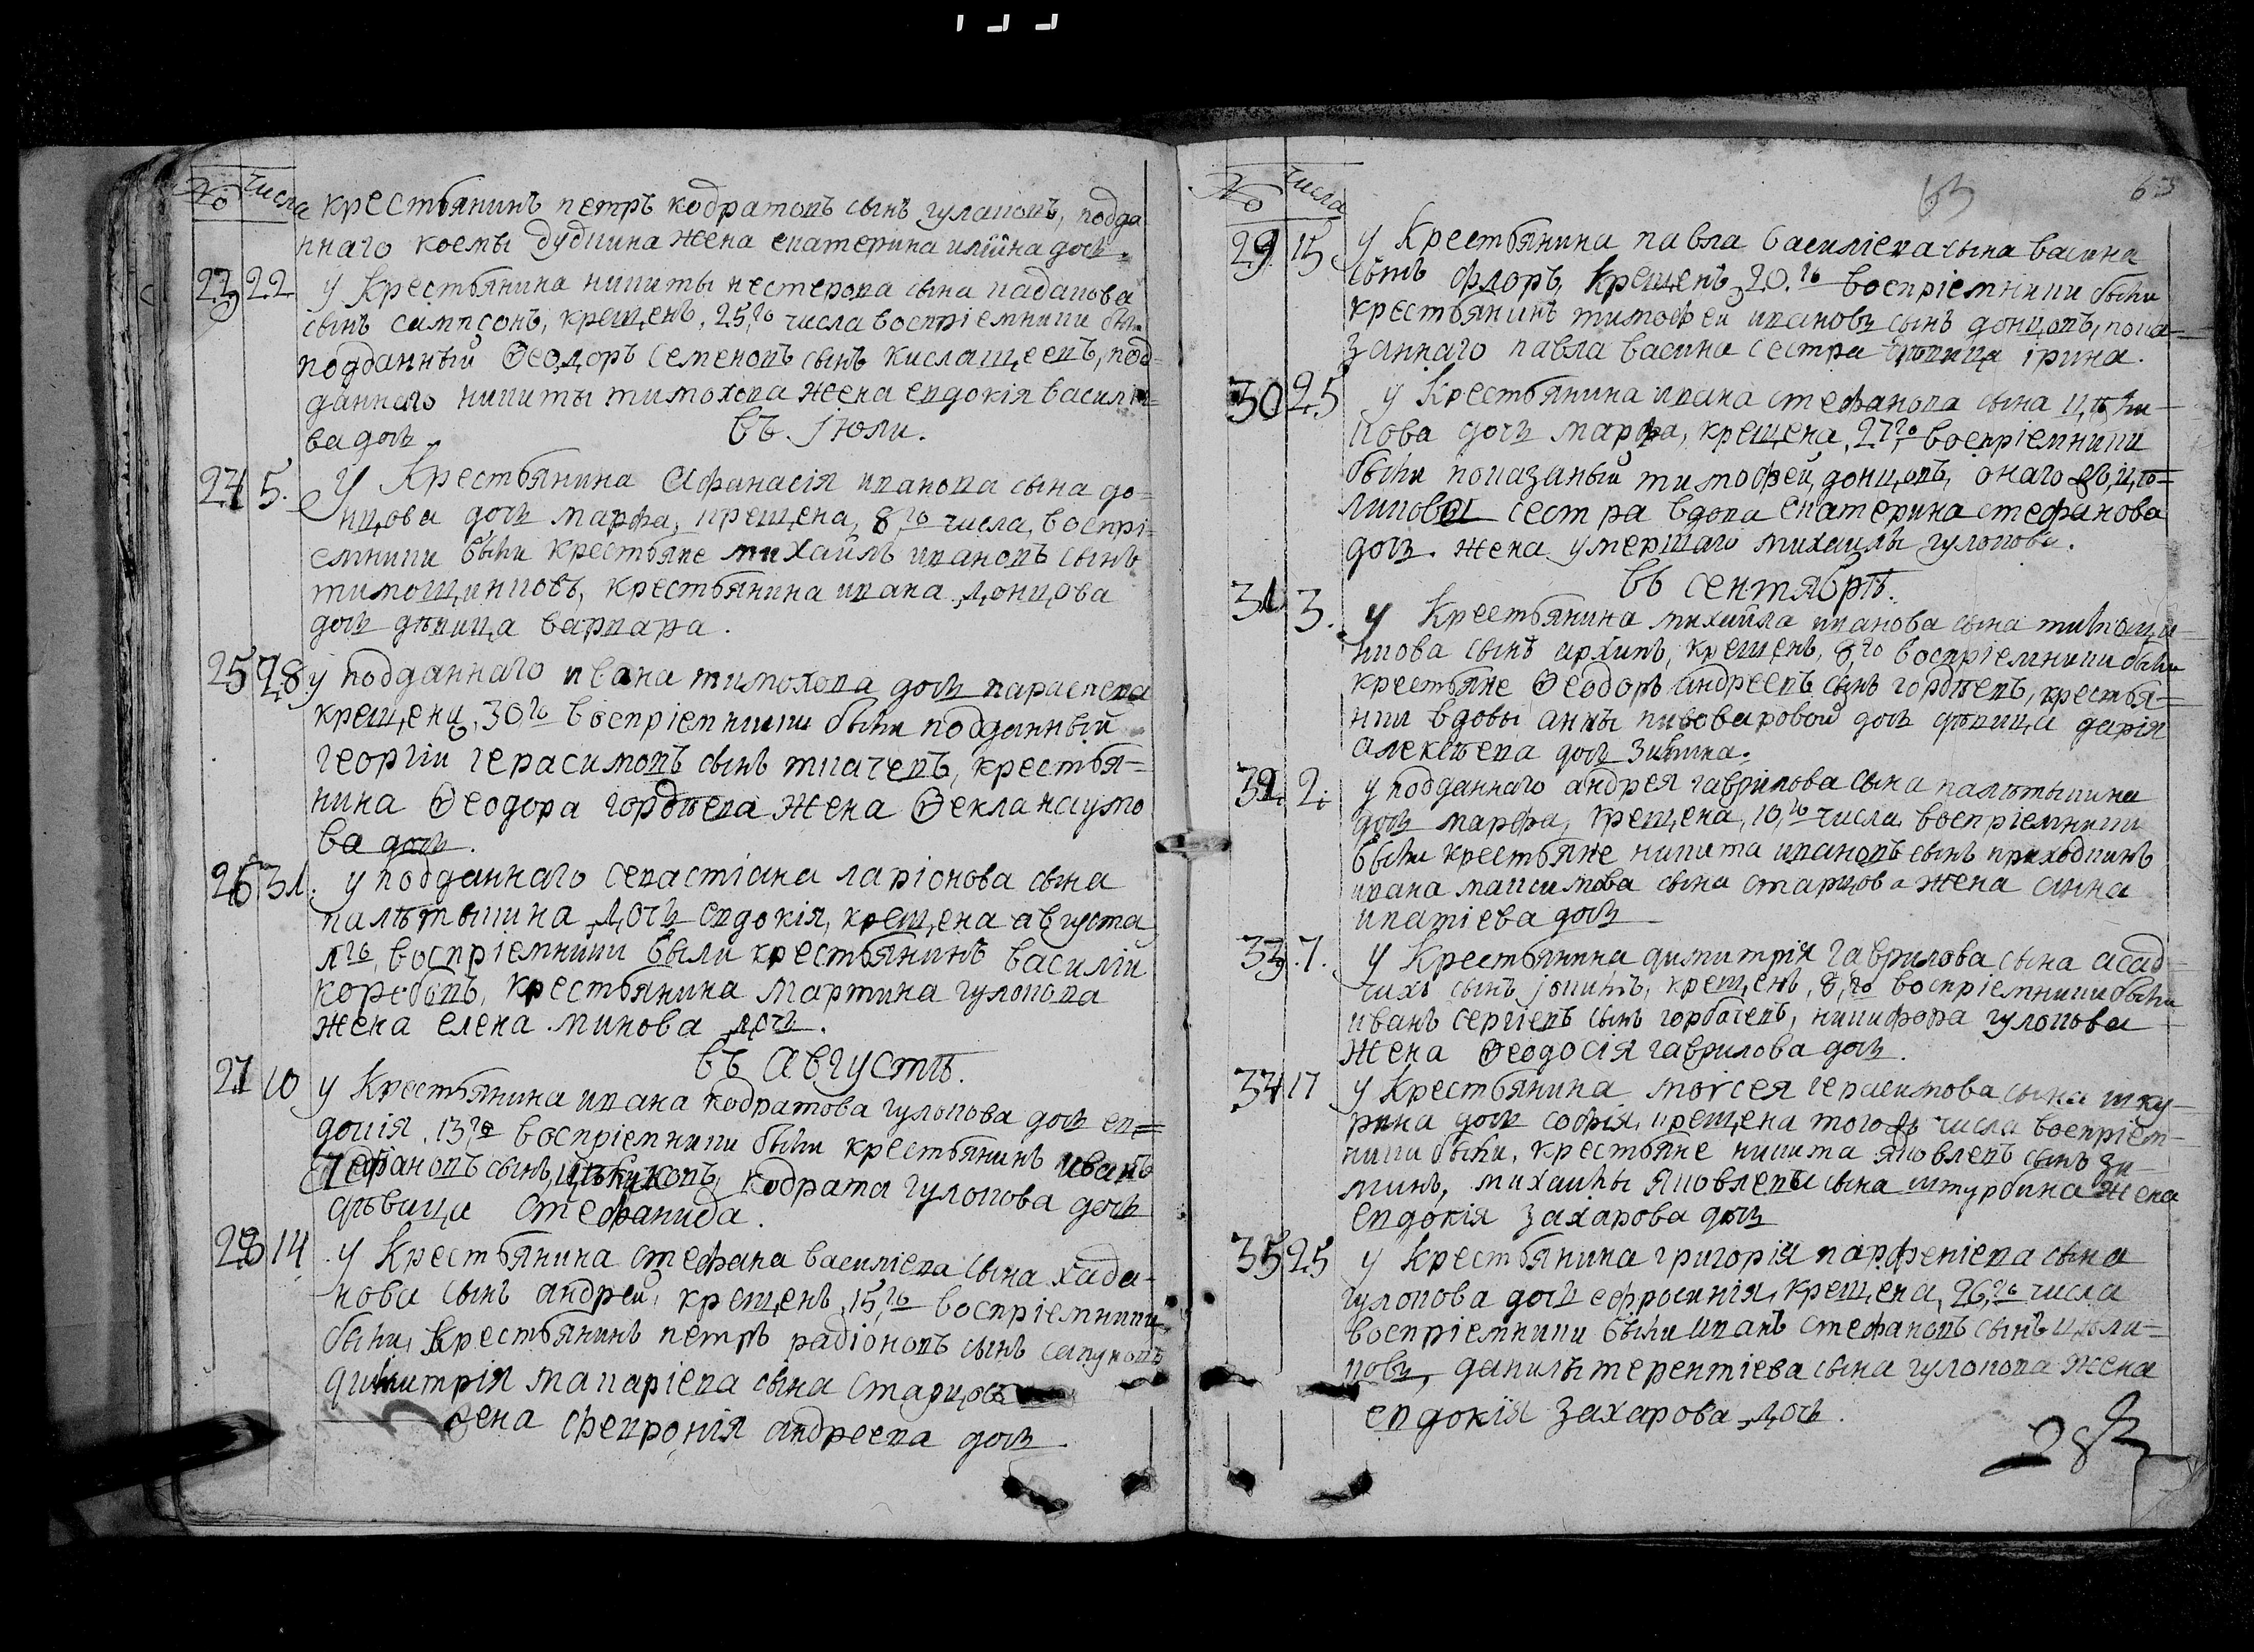 № числа
крестьянинъ петръ кодратовъ сынъ гулаковъ, подда
ннаго космы дудкина жена екатерина илïина дочь.
23 22 у крестьянина никиты нестерова сына кадакова
сынъ сампсонъ, крещенъ, 25,го числа воспрïемники были
подданный Ѳеодоръ семеновъ сынъ кислащеевъ, под-
даннаго никиты тимохова жена евдокïя василïе-
ва дочь.
въ Iюли.
24 5. У крестьянина Афанасïя иванова сына до-
нцова дочь марфа, крещена, 8,го числа, воспрï-
емники были крестьяне михайлъ ивановъ сынъ
тимощинковъ, крестьянина ивана донцова
дочь дѣвица варвара.
25 28. у подданнаго ивана тимохова дочь параскева
крещена, 30,го воспрïемники были подданный
георгïи герасимовъ сынъ ткачевъ, крестья-
нина Ѳеодора гордѣева жена Ѳекла наумо
ва дочь.
26 31. у подданнаго севастïана ларïонова сына
палѣтыкина дочь евдокïя, крещена августа
1го, воспрïемники были крестьянинъ василïи
коробовъ, крестьянина мартина гулокова
жена елена минова дочь.
въ Августѣ.
27 10 у крестьянина ивана кодратова гулокова дочь ев-
докïя, 13,го воспрïемники были крестьянинъ иванъ
стефановъ сынъ кодрата гулокова дочь
дѣвица стефанида.
28 14 у крестьянина стефана василïева сына хада-
кова сынъ андрей, крещенъ, 15,го воспрïемники
были, крестьянинъ петръ радïоновъ сынъ сапуновъ
димитрïя макарïева сына старцова
жена февронïя андреева дочь.
63 63
№ числа
29 15 у крестьянина павла василïева сына васина
сынъ флоръ, крещенъ, 20,го воспрïемники были
крестьянинъ тимофей ивановъ сынъ донцовъ, пока-
заннаго павла васина сестра дѣвица iрина.
30 25 у крестьянина ивана стефанова сына цѣли-
кова дочь марфа, крещена, 27го воспрïемники
были показаный тимофей донцовъ, онаго цѣ-
ликова сестра вдова екатерина стефанова
дочь. жена умершаго михаилы гулокова.
въ сентябрѣ.
31 3. у крестьянина михайла иванова сына тимощи-
нкова сынъ архипъ, крещенъ, 8,го воспрïемники были
крестьяне Ѳеодоръ андреевъ сынъ гордѣевъ, крестья-
нки вдовы анны пивоваровой дочь дѣвица дарïя
алексѣева дочь зимина.
32. 2. у подданнаго андрея гаврилова сына палѣтыкина
дочь марфа, крещена, 10,го числа, воспрïемники
были крестьяне никита ивановъ сынъ приходкинъ
ивана максимова сына старцова жена анна
ипатïева дочь
33. 7. у крестьянина димитрïя гаврилова сына асад-
чихъ сынъ iоникъ, крещенъ, 8,го воспрïемники были
иванъ сергïевъ сынъ горбачевъ, никифора гулокова
жена Ѳеодосïя гаврилова дочь.
34 17 у крестьянина моѵсея герасимова сына шку-
рина дочь софïя, крещена тогожъ числа воспрïем-
ники были, крестьяне никита яковлевъ сынъ зи-
минъ, михаилы яковлева сына штурбина жена
евдокïя захарова дочь
35 25 у крестьянина григорïя парфенïева сына
гулокова дочь ефросинïя, крещена, 26,го числа
воспрïемники были иванъ стефановъ сынъ цѣли-
ковъ, данилы терентïева сына гулокова жена
евдокïя захарова дочь.